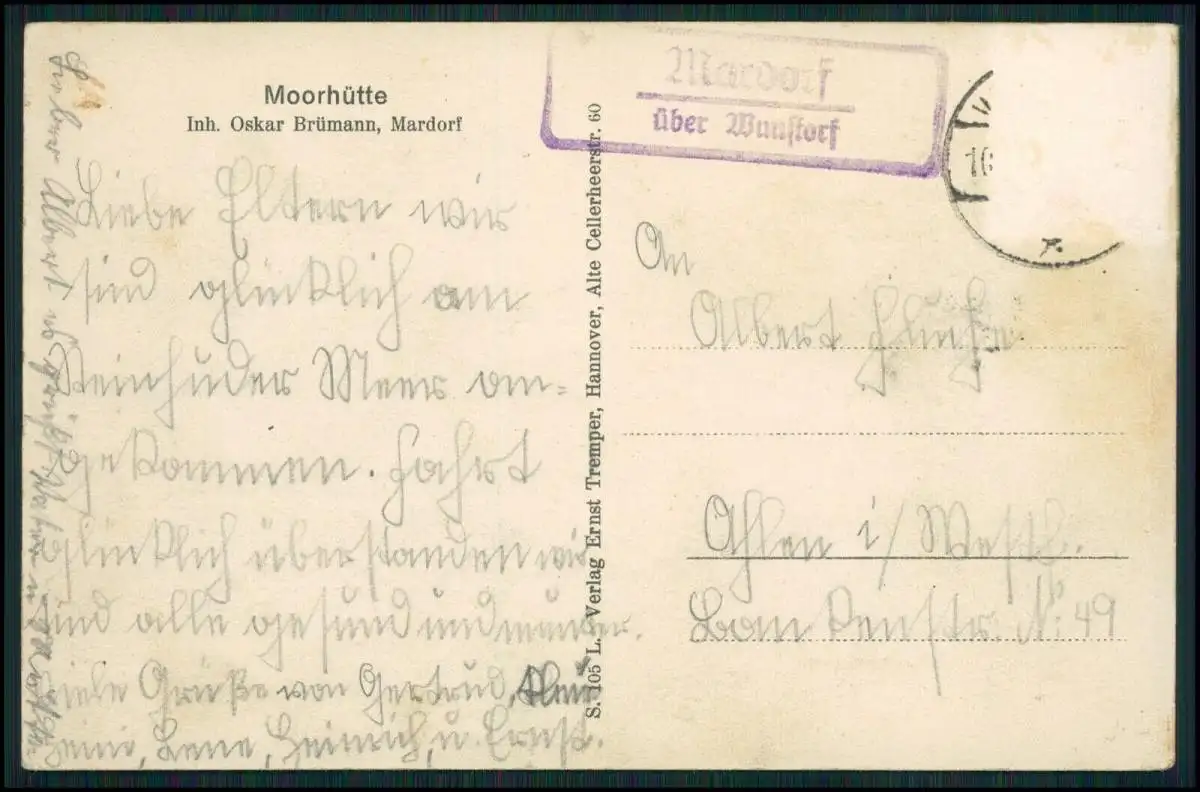 Moorhütte
Inh. Oskar Brümann, Mardorf
Liebe Eltern wir
sind glücklich am
Steinhuder Meer an=
gekommen. Fahrt
glücklich überstanden wir
sind alle gesund und munter.
Viele Grüße von Gertrud,
Heini, Lene, Heinrich, u. Ernst.
Lieber Albert
S. 105 L. Verlag Ernst Tremper, Hannover, Alte Cellerheerstr. 60
Mardorf
über Wunstorf
An
Albert
Ahlen i/ Westf.
Bankenstr. Nr 49